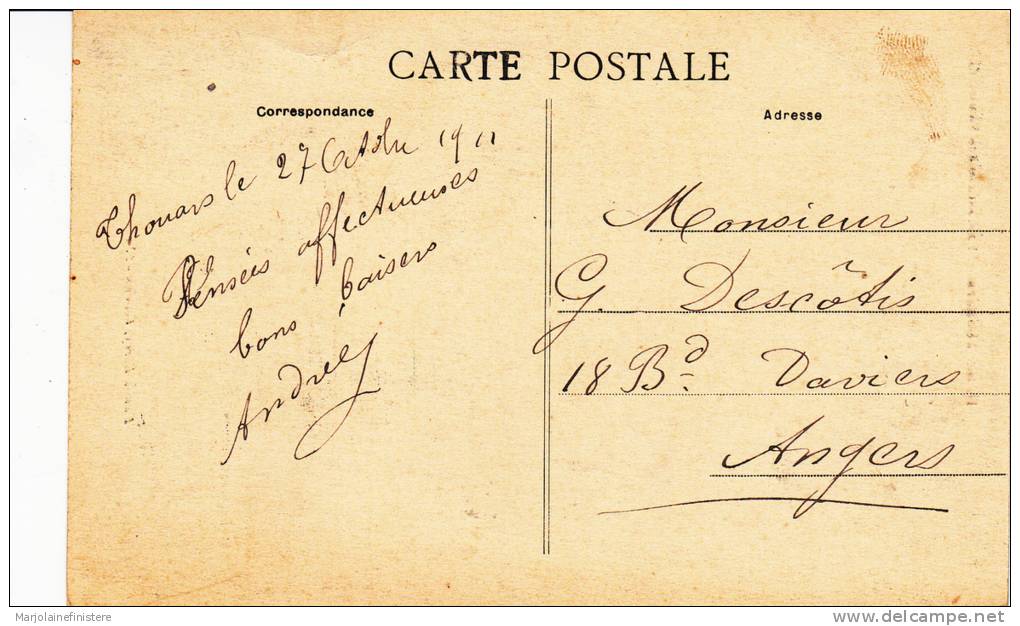 CARTE POSTALE
Correspondance
Thouars le 27 Octobre 1911
Pensées affectueuses
bons baisers
Andrée
Adresse
Monsieur
G. Descôtis
18 Bd Daviers
Angers
Marjolainefinistere
www.delcampe.net